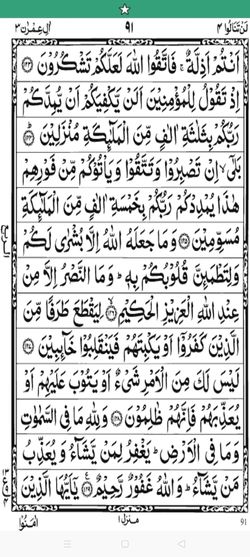 لن تنالوا ٤ ٩١ اٰل عمرٰن ٣
اَنْتُمْ اَذِلَّةٌ ۚ فَاتَّقُوا اللّٰهَ لَعَلَّكُمْ تَشْكُرُوْنَ ﴿۱۲۳﴾
اِذْ تَقُوْلُ لِلْمُؤْمِنِيْنَ اَلَنْ يَّكْفِيَكُمْ اَنْ يُّمِدَّكُمْ
رَبُّكُمْ بِثَلٰثَةِ اٰلٰفٍ مِّنَ الْمَلٰٓئِكَةِ مُنْزَلِيْنَ ﴿۱۲۴﴾
بَلٰٓى ۙ اِنْ تَصْبِرُوْا وَتَتَّقُوْا وَيَاْتُوْكُمْ مِّنْ فَوْرِهِمْ
هٰذَا يُمْدِدْكُمْ رَبُّكُمْ بِخَمْسَةِ اٰلٰفٍ مِّنَ الْمَلٰٓئِكَةِ
مُسَوِّمِيْنَ ﴿۱۲۵﴾ وَمَا جَعَلَهُ اللّٰهُ اِلَّا بُشْرٰى لَكُمْ
وَلِتَطْمَئِنَّ قُلُوْبُكُمْ بِهٖ ؕ وَمَا النَّصْرُ اِلَّا مِنْ
عِنْدِ اللّٰهِ الْعَزِيْزِ الْحَكِيْمِ ﴿۱۲۶﴾ لِيَقْطَعَ طَرَفًا مِّنَ
الَّذِيْنَ كَفَرُوْٓا اَوْ يَكْبِتَهُمْ فَيَنْقَلِبُوْا خَآئِبِيْنَ ﴿۱۲۷﴾
لَيْسَ لَكَ مِنَ الْاَمْرِ شَيْءٌ اَوْ يَتُوْبَ عَلَيْهِمْ اَوْ
يُعَذِّبَهُمْ فَاِنَّهُمْ ظٰلِمُوْنَ ﴿۱۲۸﴾ وَلِلّٰهِ مَا فِى السَّمٰوٰتِ
وَمَا فِى الْاَرْضِ ؕ يَغْفِرُ لِمَنْ يَّشَآءُ وَيُعَذِّبُ
مَنْ يَّشَآءُ ؕ وَاللّٰهُ غَفُوْرٌ رَّحِيْمٌ ﴿۱۲۹﴾ يٰٓاَيُّهَا الَّذِيْنَ
منزل ١ اٰمنوا
91